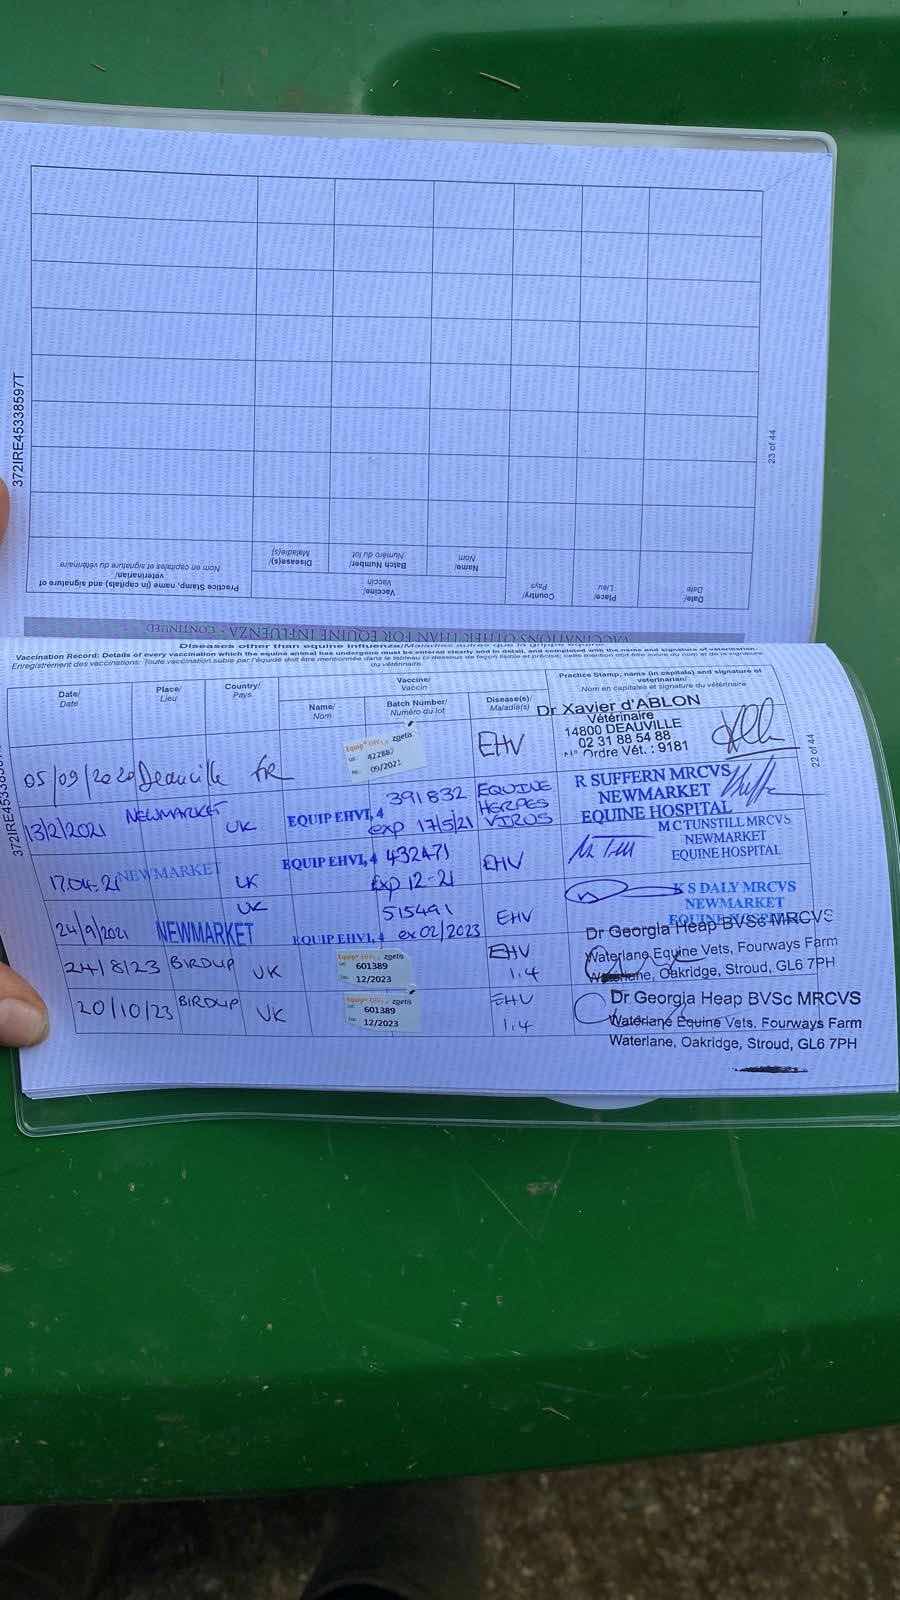 372IRE45338597T
23 of 44
VACCINATIONS OTHER THAN FOR EQUINE INFLUENZA - CONTINUED
Date/
Date
Place/
Lieu
Country/
Pays
Vaccine/
Vaccin
Name/
Nom
Batch Number/
Numéro du lot
Disease(s)/
Maladie(s)
Practice Stamp, name (in capitals) and signature of
veterinarian/
Nom en capitales et signature du vétérinaire
Diseases other than equine influenza/Maladies autres que la grippe équine
Vaccination Record: Details of every vaccination which the equine animal has undergone must be entered clearly and in detail, and completed with the name and signature of veterinarian.
Enregistrement des vaccinations: Toute vaccination subie par l'équidé doit être mentionnée dans le tableau ci-dessous de façon lisible et précise; cette mention doit être suivie du nom et de la signature
du vétérinaire.
Date/
Date
Place/
Lieu
Country/
Pays
Vaccine/
Vaccin
Name/
Nom
Batch Number/
Numéro du lot
Disease(s)/
Maladie(s)
Practice Stamp, name (in capitals) and signature of
veterinarian/
Nom en capitales et signature du vétérinaire
22 of 44
05/09/2020 Deauville FR
Equip EHV1,4 zoetis
422887
09/2021
EHV
Dr Xavier d'ABLON
Vétérinaire
14800 DEAUVILLE
02 31 88 54 88
N° Ordre Vét. : 9181
13/2/2021 NEWMARKET UK
EQUIP EHV1, 4
391832
exp 17/5/21
EQUINE
HERPES
VIRUS
R SUFFERN MRCVS
NEWMARKET
EQUINE HOSPITAL
17.04.21 NEWMARKET UK
EQUIP EHV1, 4 432471
Exp 12-21
EHV
M C TUNSTILL MRCVS
NEWMARKET
EQUINE HOSPITAL
24/9/2021 NEWMARKET UK
EQUIP EHV1, 4
515491
ex 02/2023
EHV
K S DALY MRCVS
NEWMARKET
24/8/23 BIRDUP UK
Equip EHV1,4 zoetis
601389
12/2023
EHV
1.4
Dr Georgia Heap BVSc MRCVS
Waterlane Equine Vets, Fourways Farm
Waterlane, Oakridge, Stroud, GL6 7PH
20/10/23 BIRDUP UK
Equip EHV1,4 zoetis
601389
12/2023
EHV
1.4
Dr Georgia Heap BVSc MRCVS
Waterlane Equine Vets, Fourways Farm
Waterlane, Oakridge, Stroud, GL6 7PH